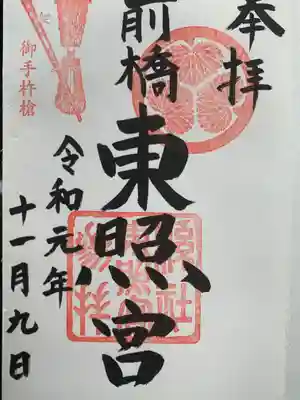 奉拝
前橋東照宮
令和元年
十一月九日
御手杵槍